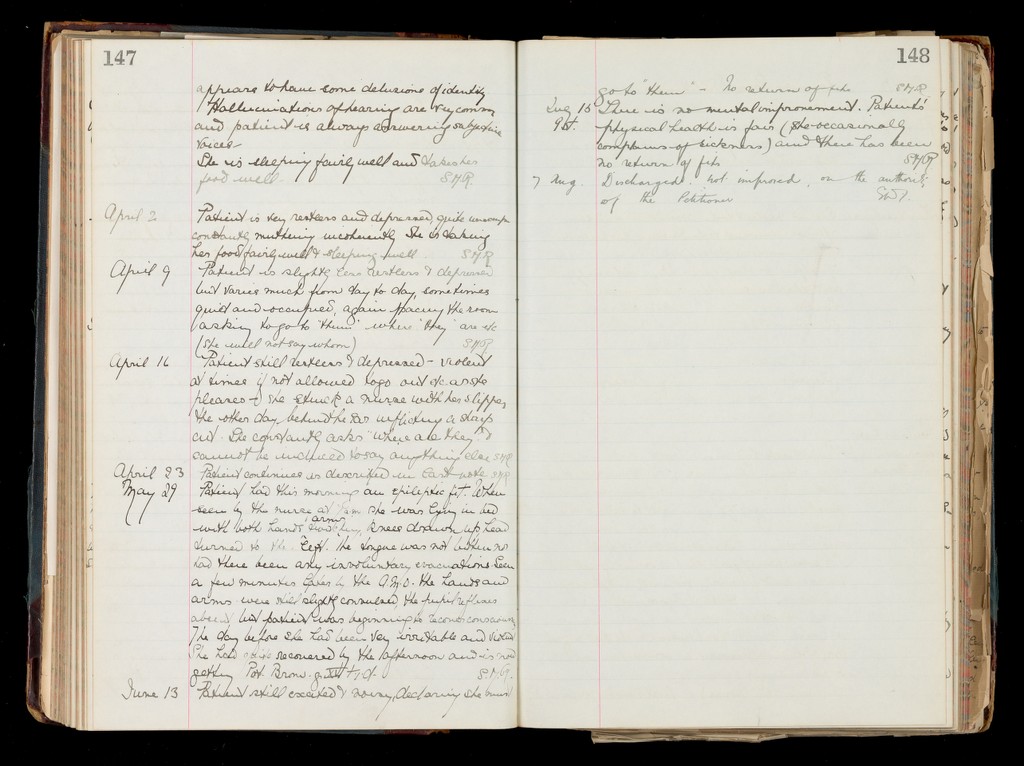 147
appears to have some delusions of identity
Hallucinations of hearing are very common
and patient is always answering subjective
voices—
She is sleeping fairly well and takes her
food well. S.M.R.
April 2 Patient is very restless and depressed, quite
constantly muttering incoherently She is taking
her food fairly well & sleeping well. S.M.R
April 9 Patient is slightly less restless & depressed
but varies much from day to day, sometimes
quiet and occupied, again pacing the room
asking to go to "them" where "they" are etc
(she will not say whom) S.M.R.
April 16 Patient still restless & depressed – violent
at times if not allowed to go out etc. as she
pleases – she struck a nurse with her slipper
the other day behind the ear inflicting a sharp
cut. She constantly asks "where are they" &
cannot be induced to say anything else S.M.R
April 23 Patient continues as described in last note. S.M.R
May 29 Patient had this morning an epileptic fit. When
seen by the nurse at 7am she was lying in bed
with both hands & arms twitching, knees drawn up, head
turned to the left. The tongue was not bitten nor
had there been any involuntary evacuations. Seen
a few minutes later by the A.M.O. the hands and
arms were still slightly convulsed the pupil reflexes
absent but patient was beginning to recover consciousness
The day before she had been very irritable and violent
She had quite recovered by the afternoon and is now
getting Pot. Brom. S.M.R.
June 13 Patient still excited & noisy, declaring she must
148
go to "them" – No return of fits S.M.R
Aug 15 There is no mental improvement. Patients'
physical health is fair (she occasionally
complains of sickness) and there has been
no return of fits S.M.R
7 Aug. Discharged. not improved, on the authority
of the Petitioner